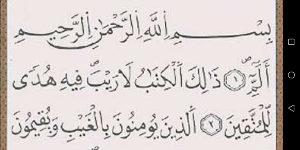 بِسْمِ اللَّهِ الرَّحْمَٰنِ الرَّحِيمِ
الٓمٓ ١ ذَٰلِكَ الْكِتَٰبُ لَا رَيْبَ فِيهِ هُدًى
لِّلْمُتَّقِينَ ٢ الَّذِينَ يُؤْمِنُونَ بِالْغَيْبِ وَيُقِيمُونَ